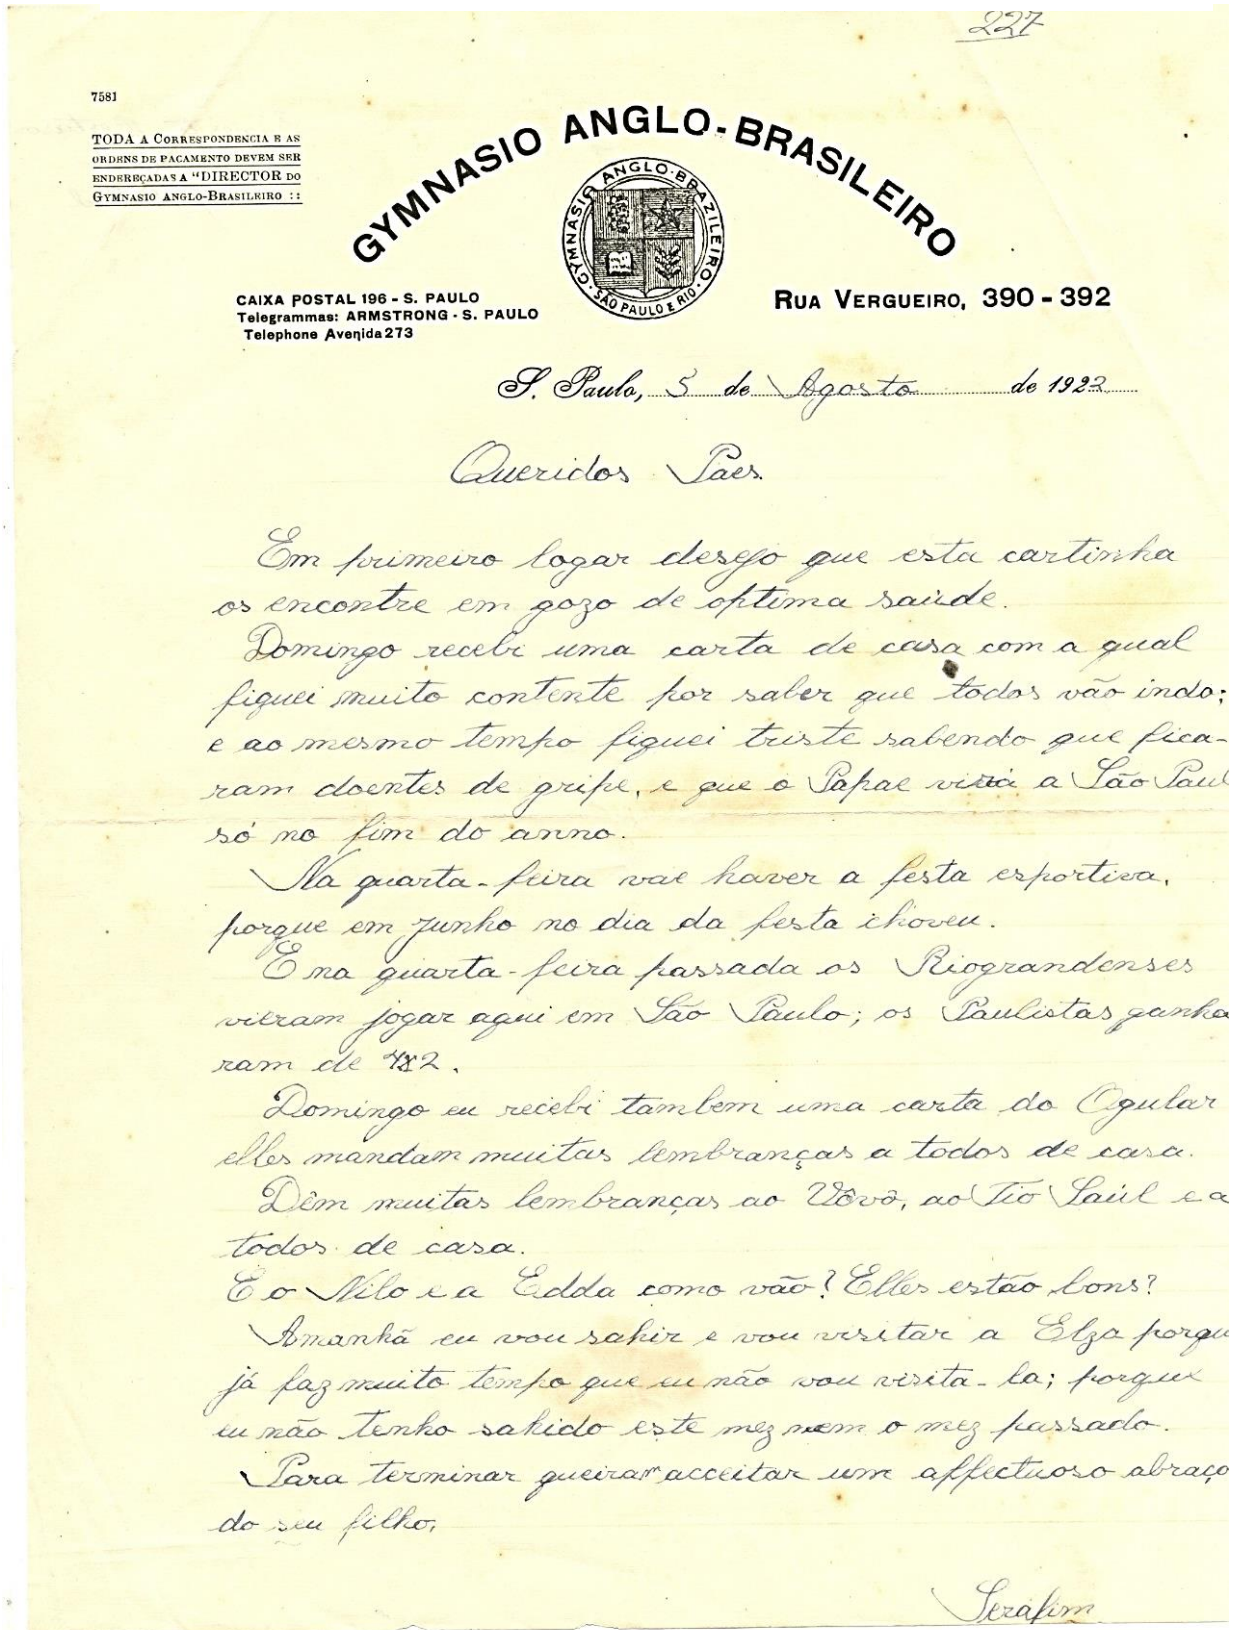 227
7581
TODA A CORRESPONDENCIA E AS
ORDENS DE PAGAMENTO DEVEM SER
ENDEREÇADAS A "DIRECTOR DO
GYMNASIO ANGLO-BRASILEIRO ::
GYMNASIO ANGLO-BRASILEIRO
GYMNASIO ANGLO-BRAZILEIRO · SÃO PAULO E RIO ·
CAIXA POSTAL 196 - S. PAULO
Telegrammas: ARMSTRONG - S. PAULO
Telephone Avenida 273
RUA VERGUEIRO, 390 - 392
S. Paulo, 5 de Agosto de 1922
Queridos Páes.
Em primeiro logar desejo que esta cartinha
os encontre em gozo de optima saúde.
Domingo recebi uma carta de casa com a qual
fiquei muito contente por saber que todos vão indo;
e ao mesmo tempo fiquei triste sabendo que fica-
ram doentes de gripe, e que o Papae virá a São Paul
só no fim do anno.
Na quarta-feira vae haver a festa esportiva,
porque em Junho no dia da festa choveu.
E na quarta-feira passada os Riograndenses
vieram jogar aqui em São Paulo; os Paulistas ganha
ram de 4x2.
Domingo eu recebi tambem uma carta do
elles mandam muitas lembranças a todos de casa.
Dêm muitas lembranças ao Vôvô, ao Tio Saúl e a
todos de casa.
E o Nilo e a Edda como vão? Elles estão bons?
Amanhã eu vou sahir e vou visitar a Elza porqu
já faz muito tempo que eu não vou visita-la; porque
eu não tenho sahido este mez nem o mez passado.
Para terminar queiram acceitar um affectuoso abraço
do seu filho,
Serafim